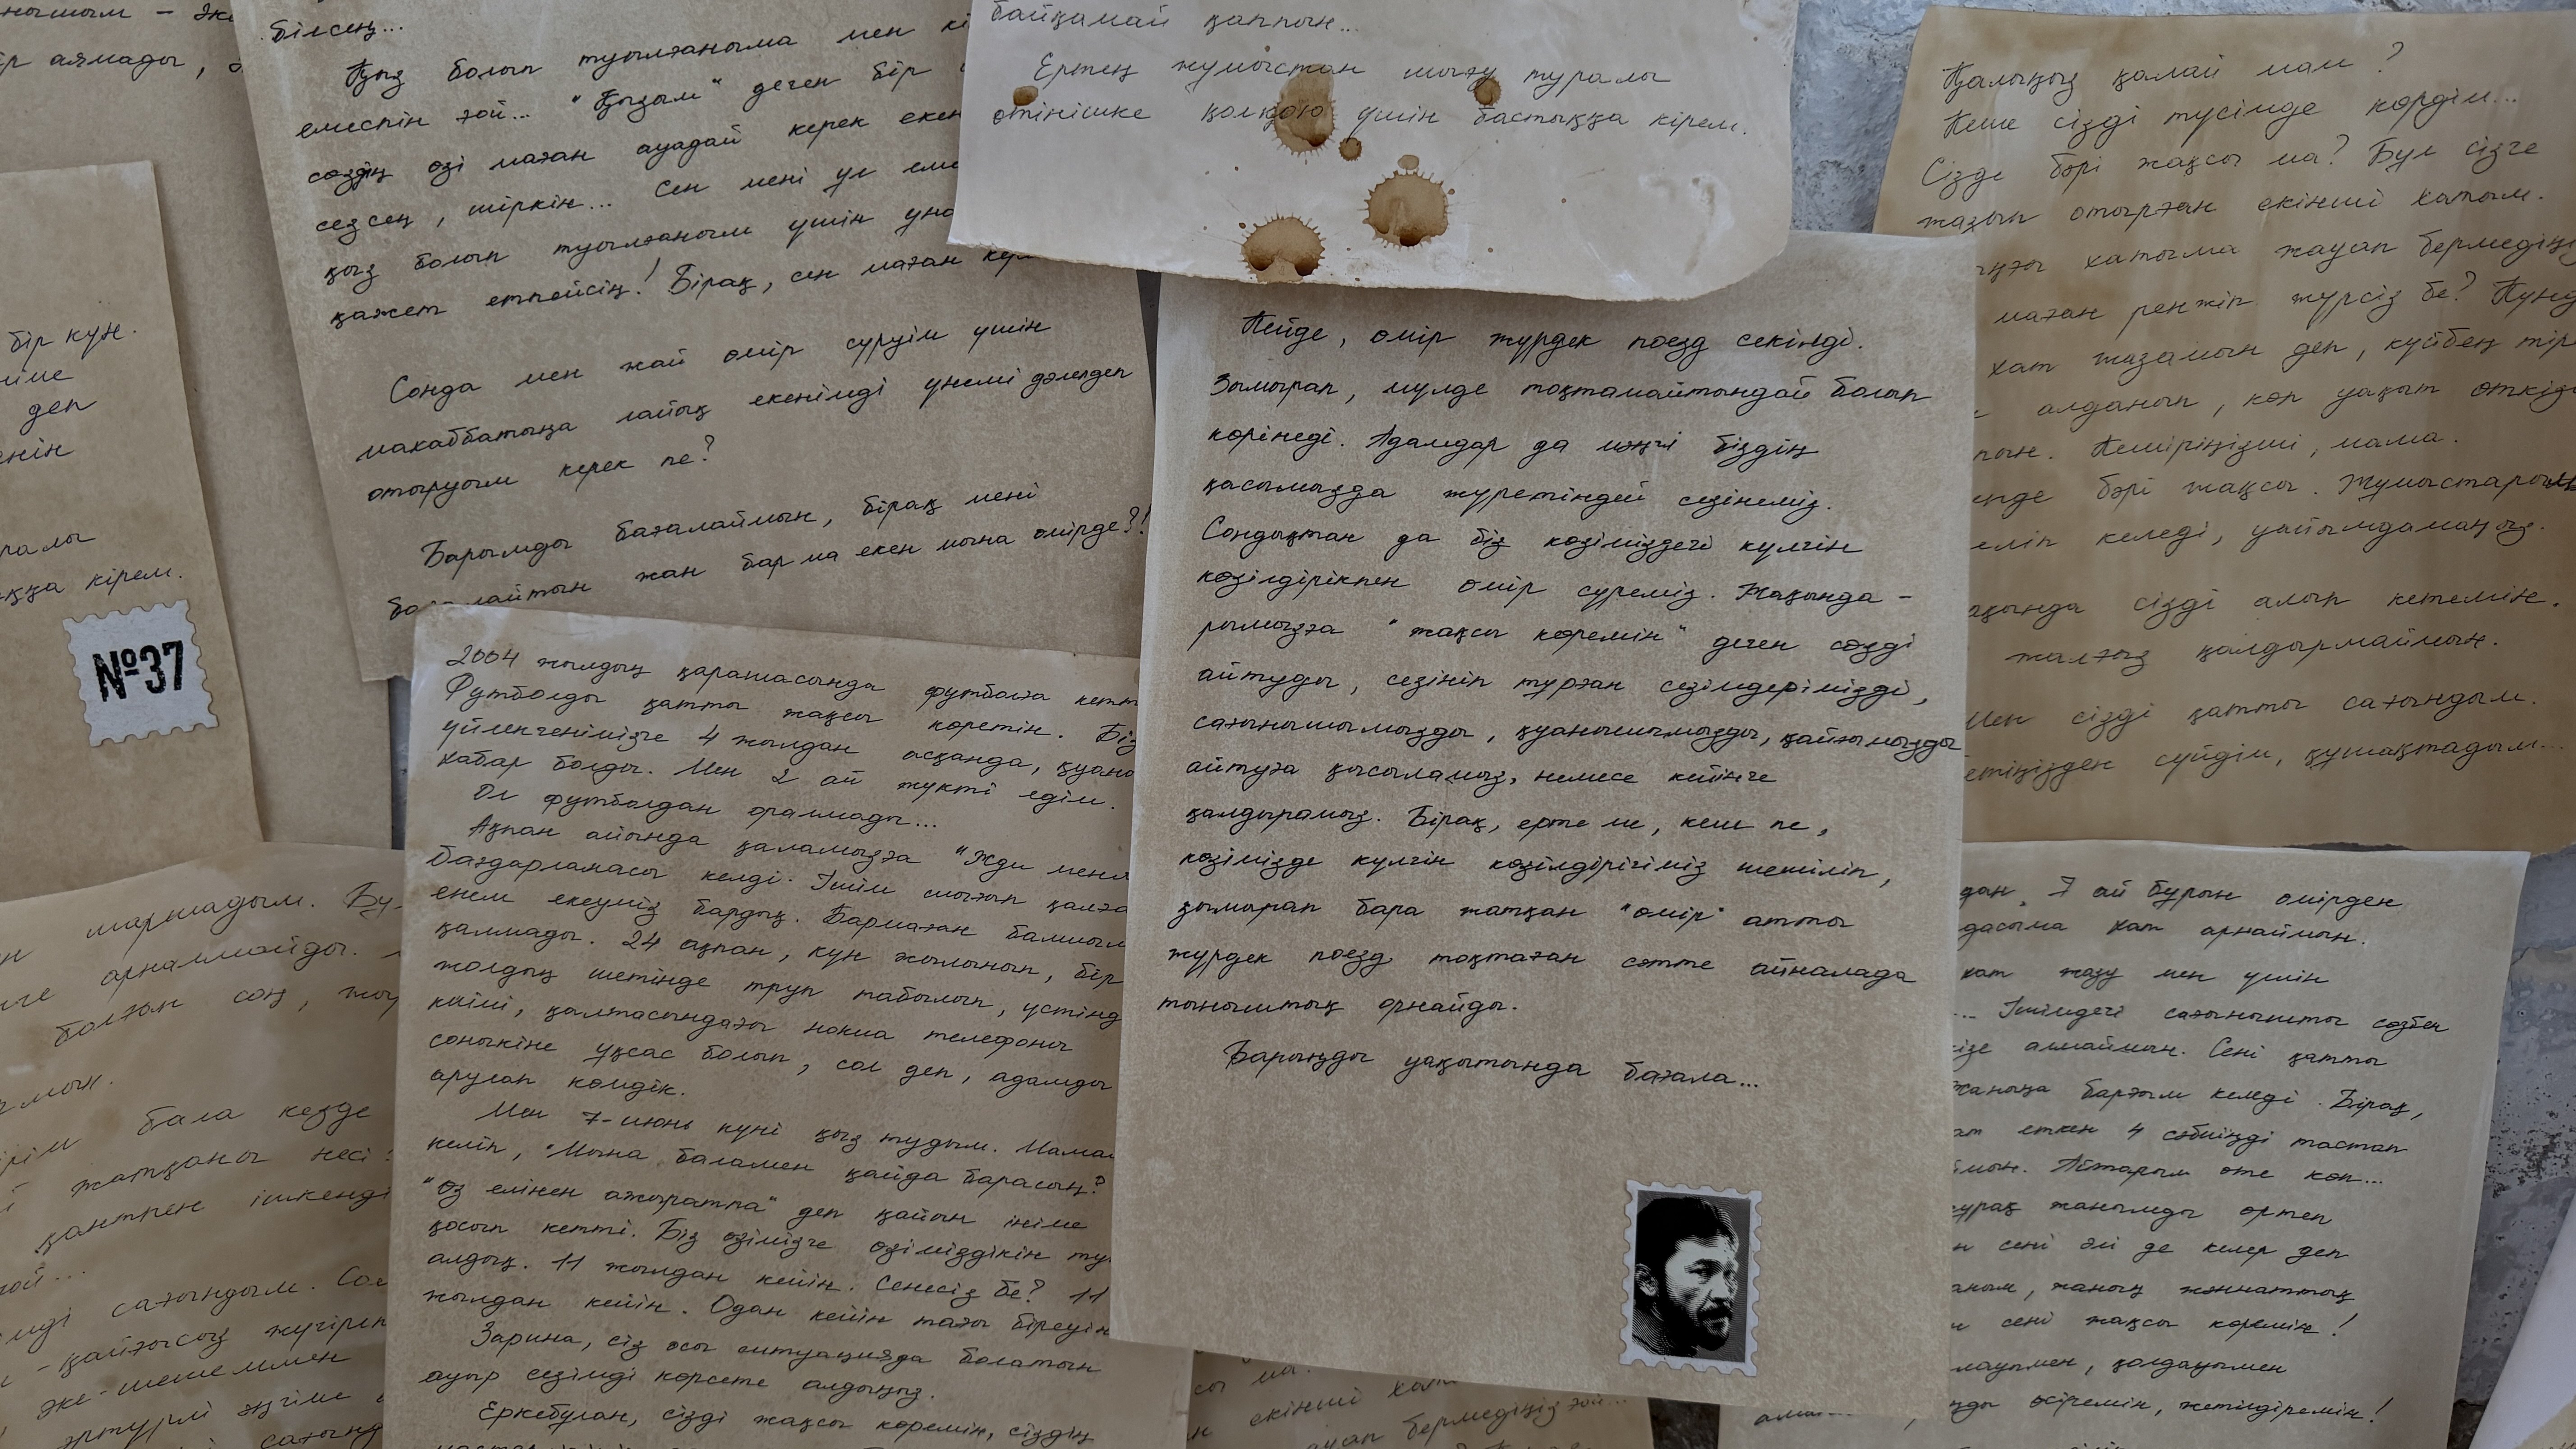 нышым - әке
ір аямады,
білсең...
Қыз болып туылғаныма мен кі
емеспін ғой... "Қызым" деген бір
сөздің өзі маған ауадай керек екен
сезсең, шіркін... Сен мені ұл еме
қыз болып туылғаным үшін ұна
қажет етпейсің! Бірақ, сен маған кер
Сонда мен жай өмір сүруім үшін
махаббатыңа лайық екенімді үнемі дәлелдеп
отыруым керек пе?
Барымды бағалаймын, бірақ мені
бағалайтын жан бар ма екен мына өмірде?!
байқамай қаппын...
Ертең жұмыстан шығу туралы
өтінішке қолқою үшін бастыққа кірем.
Қалыңыз қалай мам?
Кеше сізді түсімде көрдім...
Сізде бәрі жақсы ма? Бұл сізге
жазып отырған екінші хатым.
ңғы хатыма жауап бермедіңіз
маған ренжіп жүрсіз бе? Күнд
хат жазамын деп, күйбең тірі
алданып, көп уақыт өткізі
ппын. Кешіріңізші, мама.
енде бәрі жақсы. Жұмыстарым
еліп келеді, уайымдамаңыз.
ақында сізді алып кетемін.
жалғыз қалдырмаймын.
Мен сізді қатты сағындым.
етіңізден сүйдім, құшақтадым...
бір күн.
німе
деп
енін
ралы
ққа кірем.
№37
Кейде, өмір жүрдек поезд секілді.
Зымырап, мүлде тоқтамайтындай болып
көрінеді. Адамдар да мәңгі біздің
қасымызда жүретіндей сезінеміз.
Сондықтан да біз көзіміздегі күлгін
көзілдірікпен өмір сүреміз. Жақында-
рымызға "жақсы көремін" деген сөзді
айтуды, сезініп тұрған сезімдерімізді,
сағынышымызды, қуанышымызды, қайғымызды
айтуға қысыламыз, немесе кейінге
қалдырамыз. Бірақ, ерте ме, кеш пе,
көзімізде күлгін көзілдірігіміз шешіліп,
зымырап бара жатқан "өмір" атты
жүрдек поезд тоқтаған сәтте айналада
тыныштық орнайды.
Барыңды уақытында бағала...
2004 жылдың қарашасында футболға кетт
Футболды қатты жақсы көретін. Біз
үйленгенімізге 4 жылдан асқанда, қуаны
хабар болды. Мен 2 ай жүкті едім.
Ол футболдан оралмады...
Ақпан айында қаламызға "Жди меня
бағдарламасы келді. Ішім шығып қалға
енем екеуміз бардық. Бармаған балшым
қалмады. 24 ақпан, күн жылынып, бір
жолдың шетінде труп табылып, үстінд
киімі, қалтасындағы нокиа телефоны
соныкіне ұқсас болып, сол деп, адамды
арулап көмдік.
Мен 7-июнь күні қыз тудым. Мамам
келіп, "Мына баламен қайда барасың?
"өз елінен ажыратпа" деп қайын ініме
қосып кетті. Біз өзімізге өзіміздікін ту
алдық. 11 жылдан кейін. Сенесіз бе? 11
жылдан кейін. Одан кейін тағы біреуін
Зарина, сіз осы ситуацияда болатын
ауыр сезімді көрсете алдыңыз.
Еркебұлан, сізді жақсы көремін, сіздің
шаршадым. Бұ
арналмайды.
болған соң, жау
мын.
бала кезде
жатқаны несі
қантпен ішкенді
ғой...
сағындым. Сол
-қайғысыз жүгіріп
әке-шешеммен
әртүрлі әңгіме
сағынд
дан, 7 ай бұрын өмірден
дасыма хат арнаймын.
хат жазу мен үшін
... Ішімдегі сағынышты сөзбен
кізе алмаймын. Сені қатты
Жаныңа барғым келеді. Бірақ,
ат еткен 4 сәбиіңді тастап
ймын. Айтарым өте көп...
сұрақ жанымды өртеп
н сені әлі де келер деп
аным, жаның жәннаттың
н сені жақсы көремін!
лауымен, қолдауымен
нды өсіремін, жетілдіремін!
сы ма.
екінші хат
ауап бермедіңіз ғой...